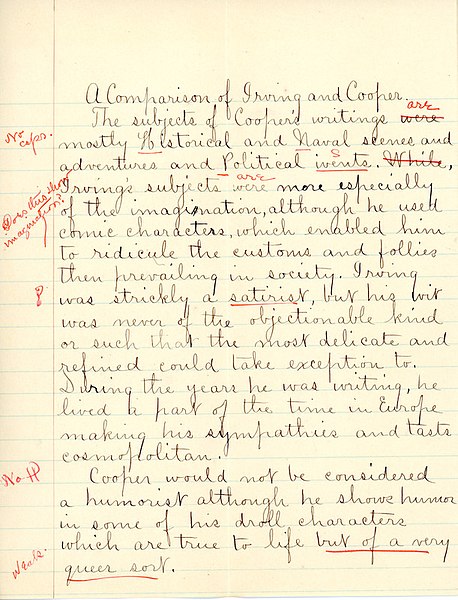 A Comparison of Irving and Cooper.
The subjects of Cooper's writings were are
No caps. mostly Historical and Naval scenes and
adventures and Political ivents. While,
Irving's subjects were are more especially
Does this show imagination? of the imagination, although he used
comic characters, which enabled him
to ridicule the customs and follies
then prevailing in society. Irving
? was strickly a satirist, but his wit
was never of the objectionable kind
or such that the most delicate and
refined could take exception to.
During the years he was writing, he
lived a part of the time in Europe
making his sympathies and tasts
cosmopolitan.
No ¶ Cooper would not be considered
a humorist although he shows humor
in some of his droll characters
which are true to life but of a very
Weak. queer sort.